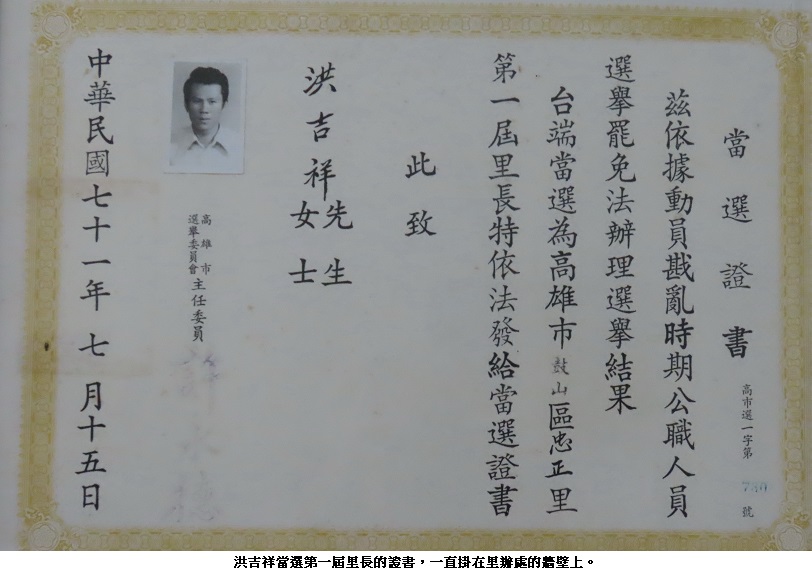 當選證書
高市選一字第 號
茲依據動員戡亂時期公職人員
選舉罷免法辦理選舉結果
台端當選為高雄市鼓山區忠正里
第一屆里長特依法發給當選證書
此致
洪吉祥先生
女士
高雄市
選舉委員會主任委員
中華民國七十一年七月十五日
洪吉祥當選第一屆里長的證書，一直掛在里辦處的牆壁上。